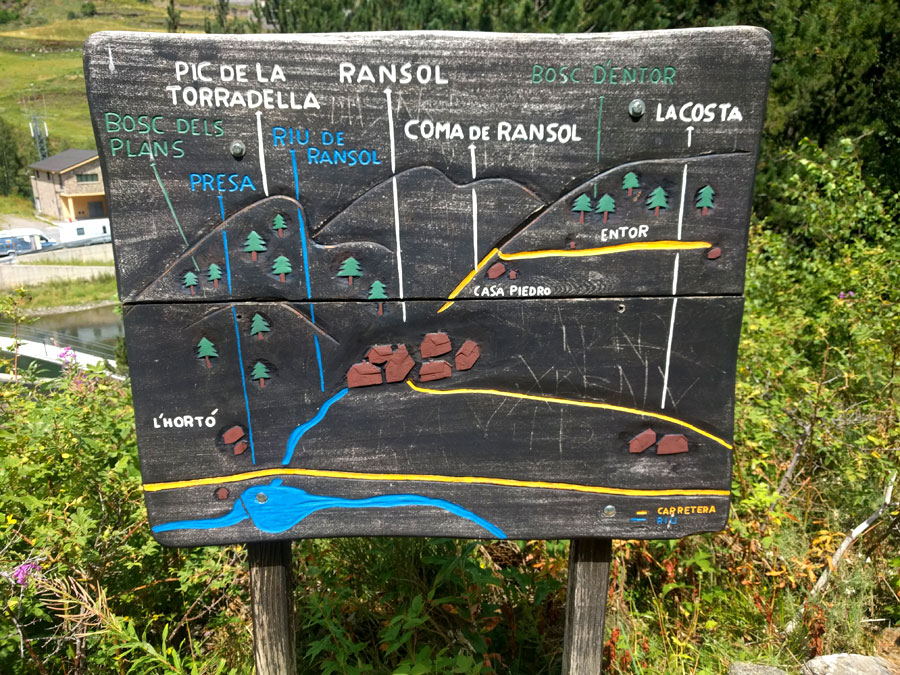 PIC DE LA
TORRADELLA
RANSOL
BOSC D'ENTOR
LA COSTA
BOSC DELS
PLANS
RIU DE
RANSOL
COMA DE RANSOL
PRESA
ENTOR
CASA PIEDRO
L'HORTÓ
CARRETERA
RIU